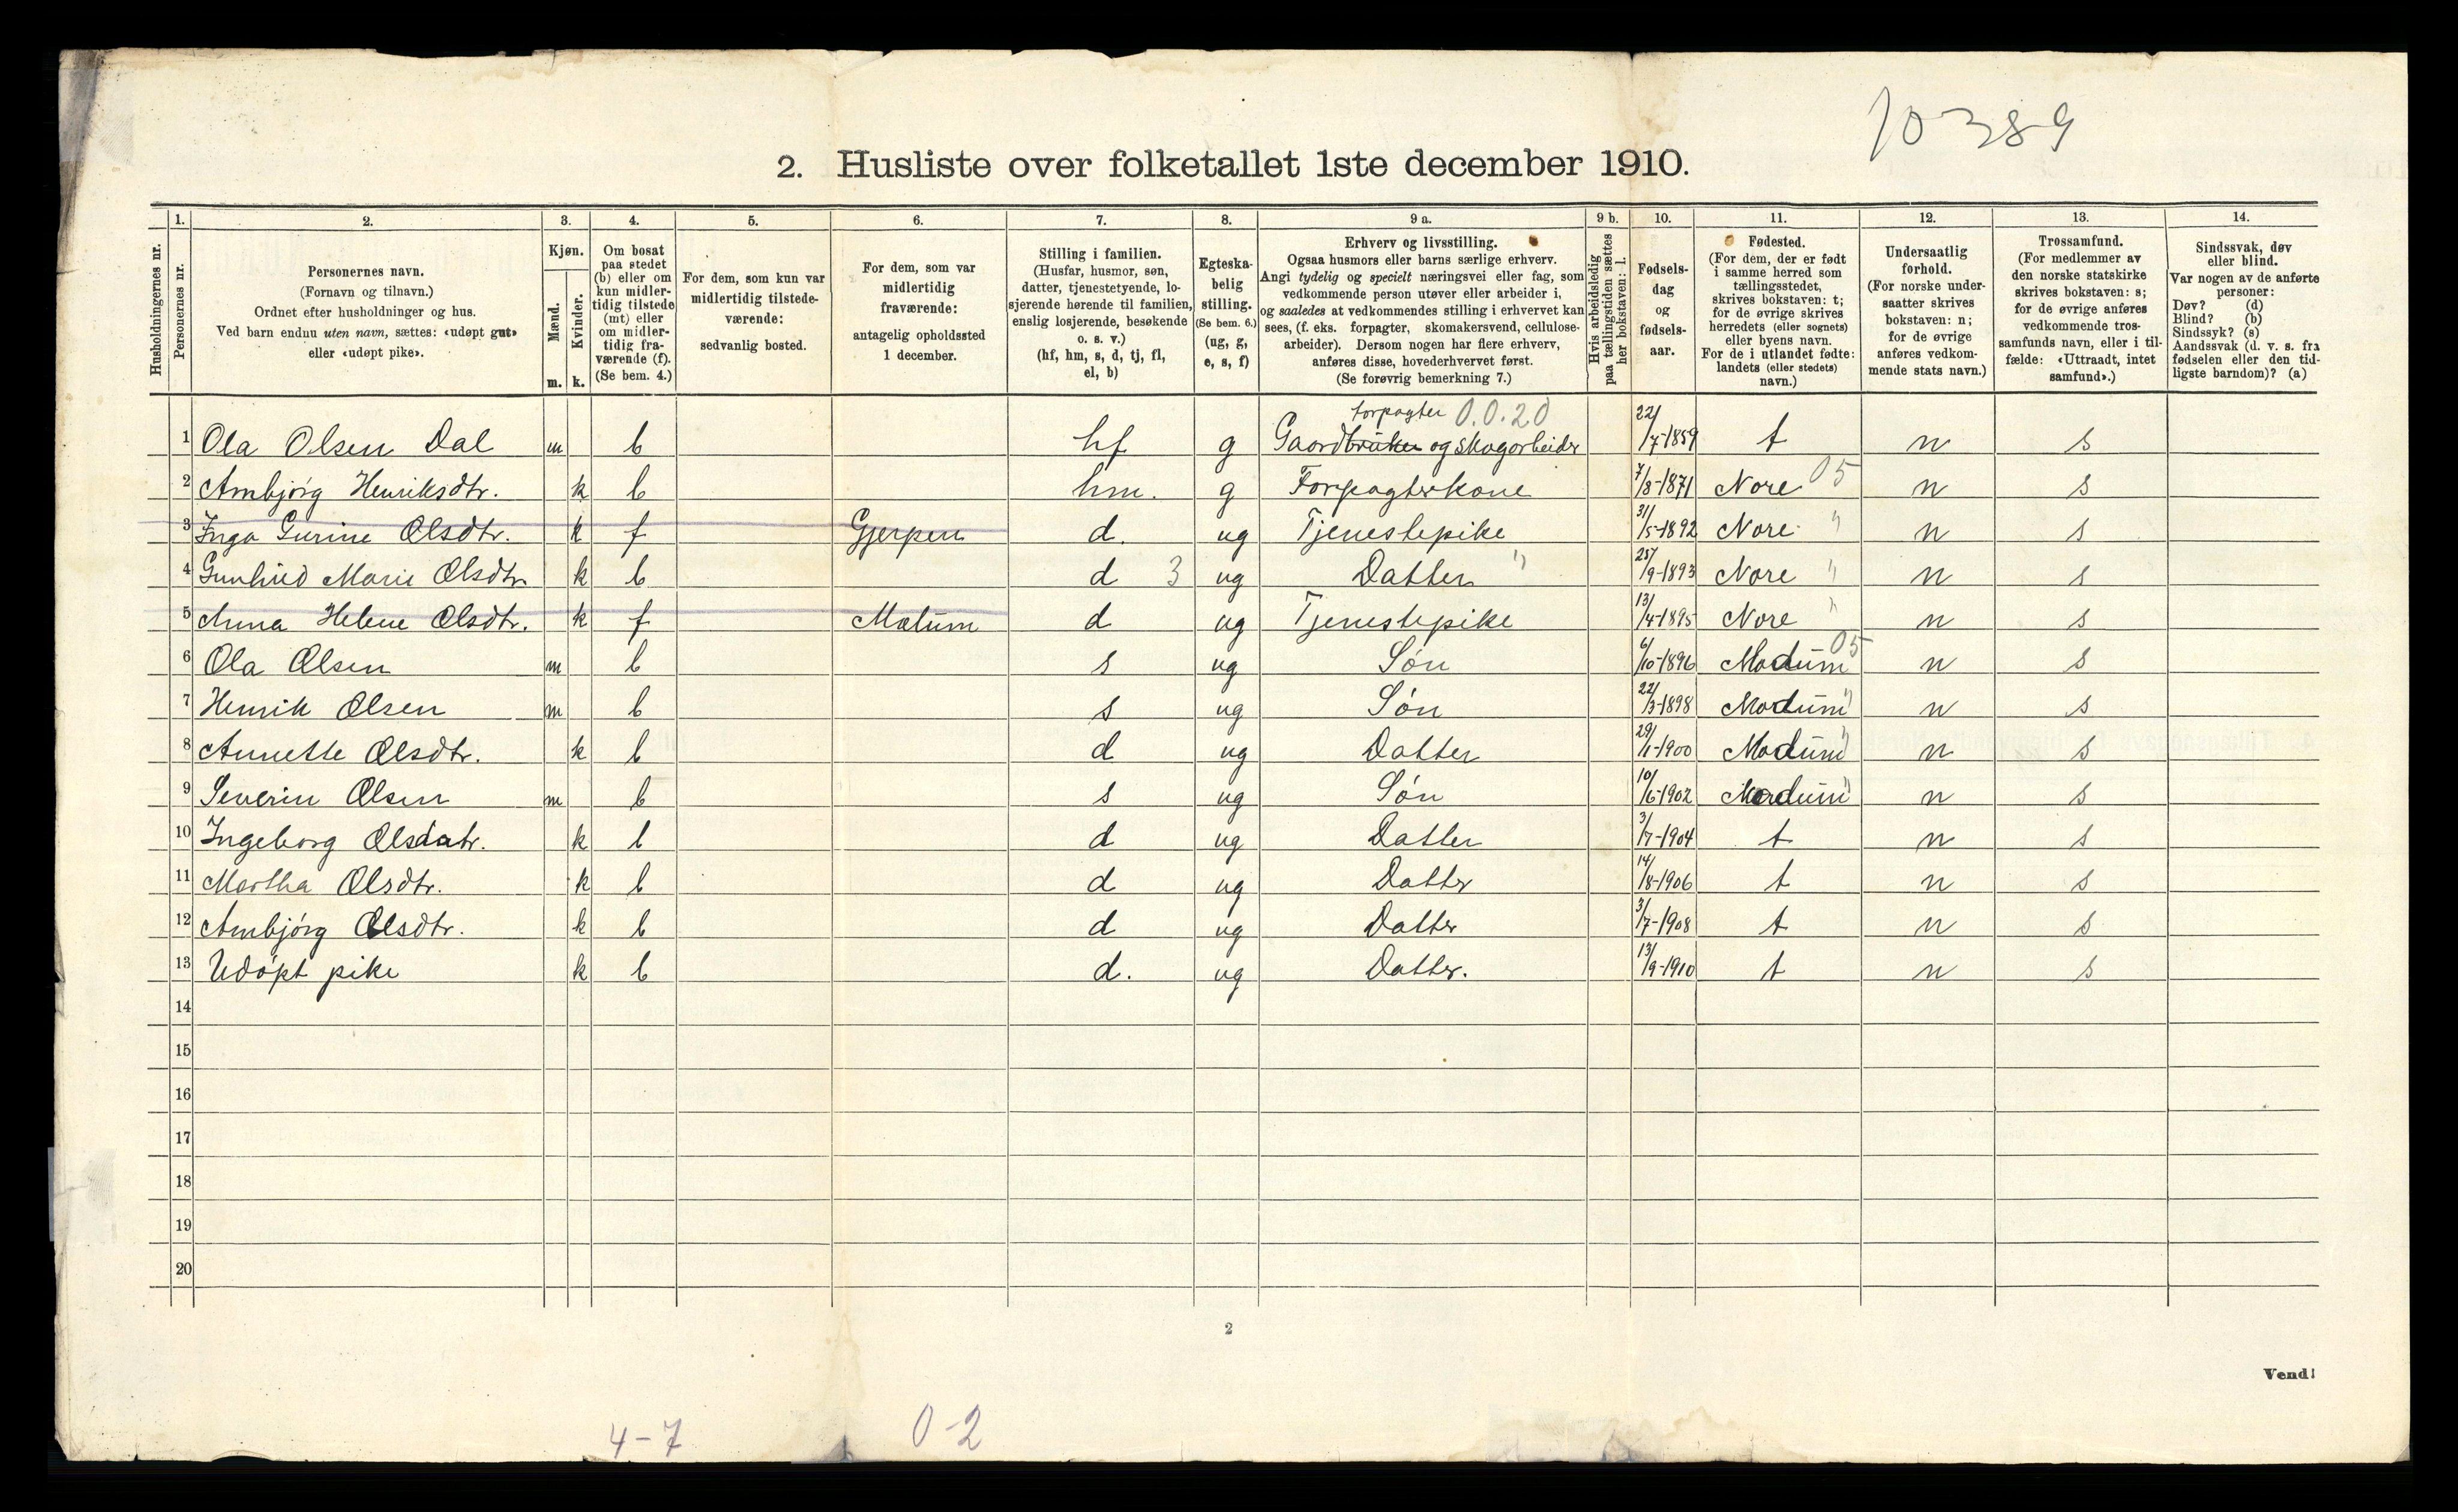 10-389
2. Husliste over folketallet 1ste december 1910.
Husholdningernes nr.
1.
Personernes nr.
2.
Personernes navn.
(Fornavn og tilnavn.)
Ordnet efter husholdninger og hus.
Ved barn endnu uten navn, sættes: «udøpt gut»
eller «udøpt pike».
3.
Kjøn.
Mænd.
Kvinder.
m. k.
4.
Om bosat
paa stedet
(b) eller om
kun midler-
tidig tilstede
(mt) eller
om midler-
tidig fra-
værende (f).
(Se bem. 4.)
5.
For dem, som kun var
midlertidig tilstede-
værende:
sedvanlig bosted.
6.
For dem, som var
midlertidig
fraværende:
antagelig opholdssted
1 december.
7.
Stilling i familien.
(Husfar, husmor, søn,
datter, tjenestetyende, lo-
sjerende hørende til familien,
enslig losjerende, besøkende
o. s. v.)
(hf, hm, s, d, tj, fl,
el, b)
8.
Egteska-
belig
stilling.
(Se bem. 6.)
(ug, g,
e, s, f)
9 a.
Erhverv og livsstilling.
Ogsaa husmors eller barns særlige erhverv.
Angi tydelig og specielt næringsvei eller fag, som
vedkommende person utøver eller arbeider i,
og saaledes at vedkommendes stilling i erhvervet kan
sees, (f. eks. forpagter, skomakersvend, cellulose-
arbeider). Dersom nogen har flere erhverv,
anføres disse, hovederhvervet først.
(Se forøvrig bemerkning 7.)
9 b.
Hvis arbeidsledig
paa tællingstiden sættes
her bokstaven: l.
10.
Fødsels-
dag
og
fødsels-
aar.
11.
Fødested.
(For dem, der er født
i samme herred som
tællingsstedet,
skrives bokstaven: t;
for de øvrige skrives
herredets (eller sognets)
eller byens navn.
For de i utlandet fødte:
landets (eller stedets)
navn.)
12.
Undersaatlig
forhold.
(For norske under-
saatter skrives
bokstaven: n;
for de øvrige
anføres vedkom-
mende stats navn.)
13.
Trossamfund.
(For medlemmer av
den norske statskirke
skrives bokstaven: s;
for de øvrige anføres
vedkommende tros-
samfunds navn, eller i til-
fælde: «Uttraadt, intet
samfund».)
14.
Sindssvak, døv
eller blind.
Var nogen av de anførte
personer:
Døv? (d)
Blind? (b)
Sindssyk? (s)
Aandssvak (d. v. s. fra
fødselen eller den tid-
ligste barndom)? (a)
forpagter 0.0.20
1 Ola Olsen Dal m b hf g Gaardbruker og skogarbeider 22/7-1859 t n s
2 Ambjørg Henriksdtr. k b hm. g Forpagterkone 7/8-1871 Nore 05 n s
3 Inga Gurine Olsdtr. k f Gjerpen d. ug Tjenestepike 31/5-1892 Nore " n s
4 Gunhild Marie Olsdtr. k b d 3 ug Datter " 25/9-1893 Nore " n s
5 Anna Helene Olsdtr. k f Mælum d ug Tjenestepike 13/4-1895 Nore " n s
6 Ola Olsen m b s ug Søn 6/10-1896 Modum 05 n s
7 Henrik Olsen m b s ug Søn 22/3-1898 Modum " n s
8 Annette Olsdtr. k b d ug Datter 29/1-1900 Modum " n s
9 Severin Olsen m b s ug Søn 10/6-1902 Modum " n s
10 Ingeborg Olsdatr. k b d ug Datter 3/7-1904 t n s
11 Martha Olsdtr. k b d ug Datter 14/8-1906 t n s
12 Ambjørg Olsdtr. k b d ug Datter 3/7-1908 t n s
13 Udøpt pike k b d. ug Datter. 13/9-1910 t n s
14
15
16
17
18
19
20
2
Vend!
4-7
0-2